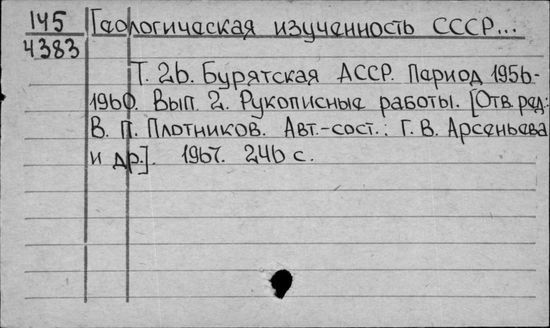 145 Геологическая изученность СССР...
4383
Т. 26. Бурятская АССР. Период 1956-
1960. Вып. 2. Рукописные работы. [Отв. ред.:
В. П. Плотников. Авт.-сост.: Г. В. Арсеньева
и др.]. 1967. 246 с.